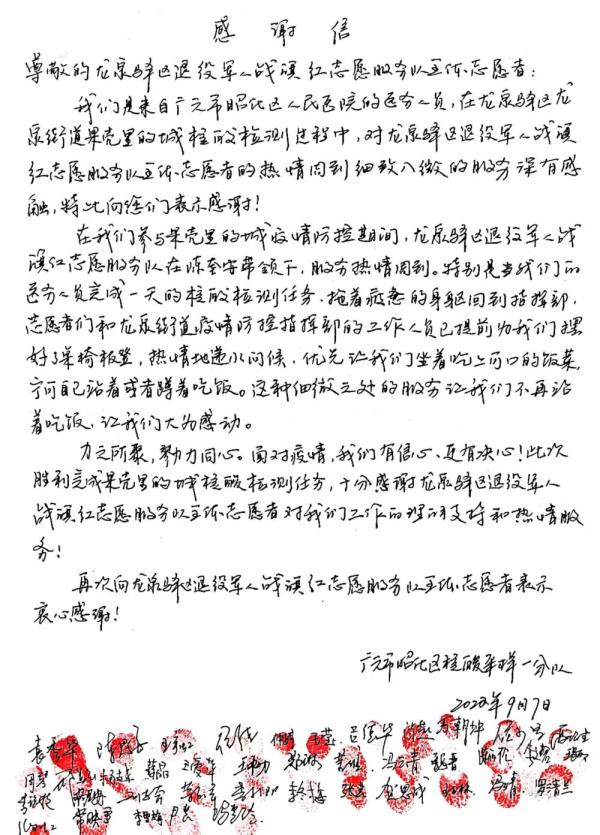 感谢信
尊敬的龙泉驿区退役军人战旗红志愿服务队全体志愿者：
我们是来自广元市昭化区人民医院的医务人员，在龙泉驿区龙
泉街道果壳里的城核酸检测过程中，对龙泉驿区退役军人战旗
红志愿服务队全体志愿者的热情周到细致入微的服务深有感
触，特此向您们表示感谢！
在我们参与果壳里的城疫情防控期间，龙泉驿区退役军人战
旗红志愿服务队在陈奎安带领下，服务热情周到。特别是当我们的
医务人员完成一天的核酸检测任务、拖着疲惫的身躯回到指挥部，
志愿者们和龙泉街道疫情防控指挥部的工作人员已提前为我们摆
好了桌椅板凳，热情地递水问候，优先让我们坐着吃上可口的饭菜，
宁可自己站着或者蹲着吃饭。这种细微之处的服务让我们不再站
着吃饭，让我们大为感动。
力之所聚，勠力同心。面对疫情，我们有信心、更有决心！此次
胜利完成果壳里的城核酸检测任务，十分感谢龙泉驿区退役军人
战旗红志愿服务队全体志愿者对我们工作的理解支持和热情服
务！
再次向龙泉驿区退役军人战旗红志愿服务队全体志愿者表示
衷心感谢！
广元市昭化区核酸采样一分队
2022年9月7日